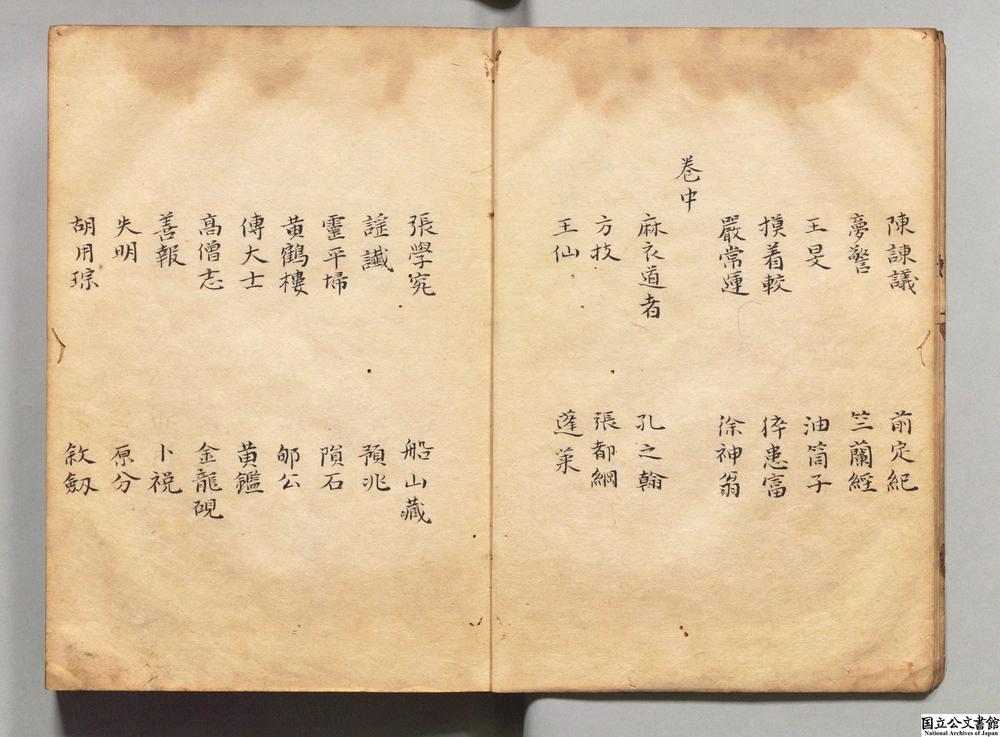 陳諫議
前定紀
夢警
竺蘭經
王旻
油筒子
摸着較
猝患富
嚴常運
徐神翁
卷中
麻衣道者
孔之翰
方技
張都綱
王仙
蓬萊
張學究
船山藏
謡讖
預兆
靈平埽
隕石
黄鶴樓
郇公
傅大士
黄鑑
高僧志
金龍硯
善報
卜祝
失明
原分
胡用琮
敘劔
国立公文書館
National Archives of Japan